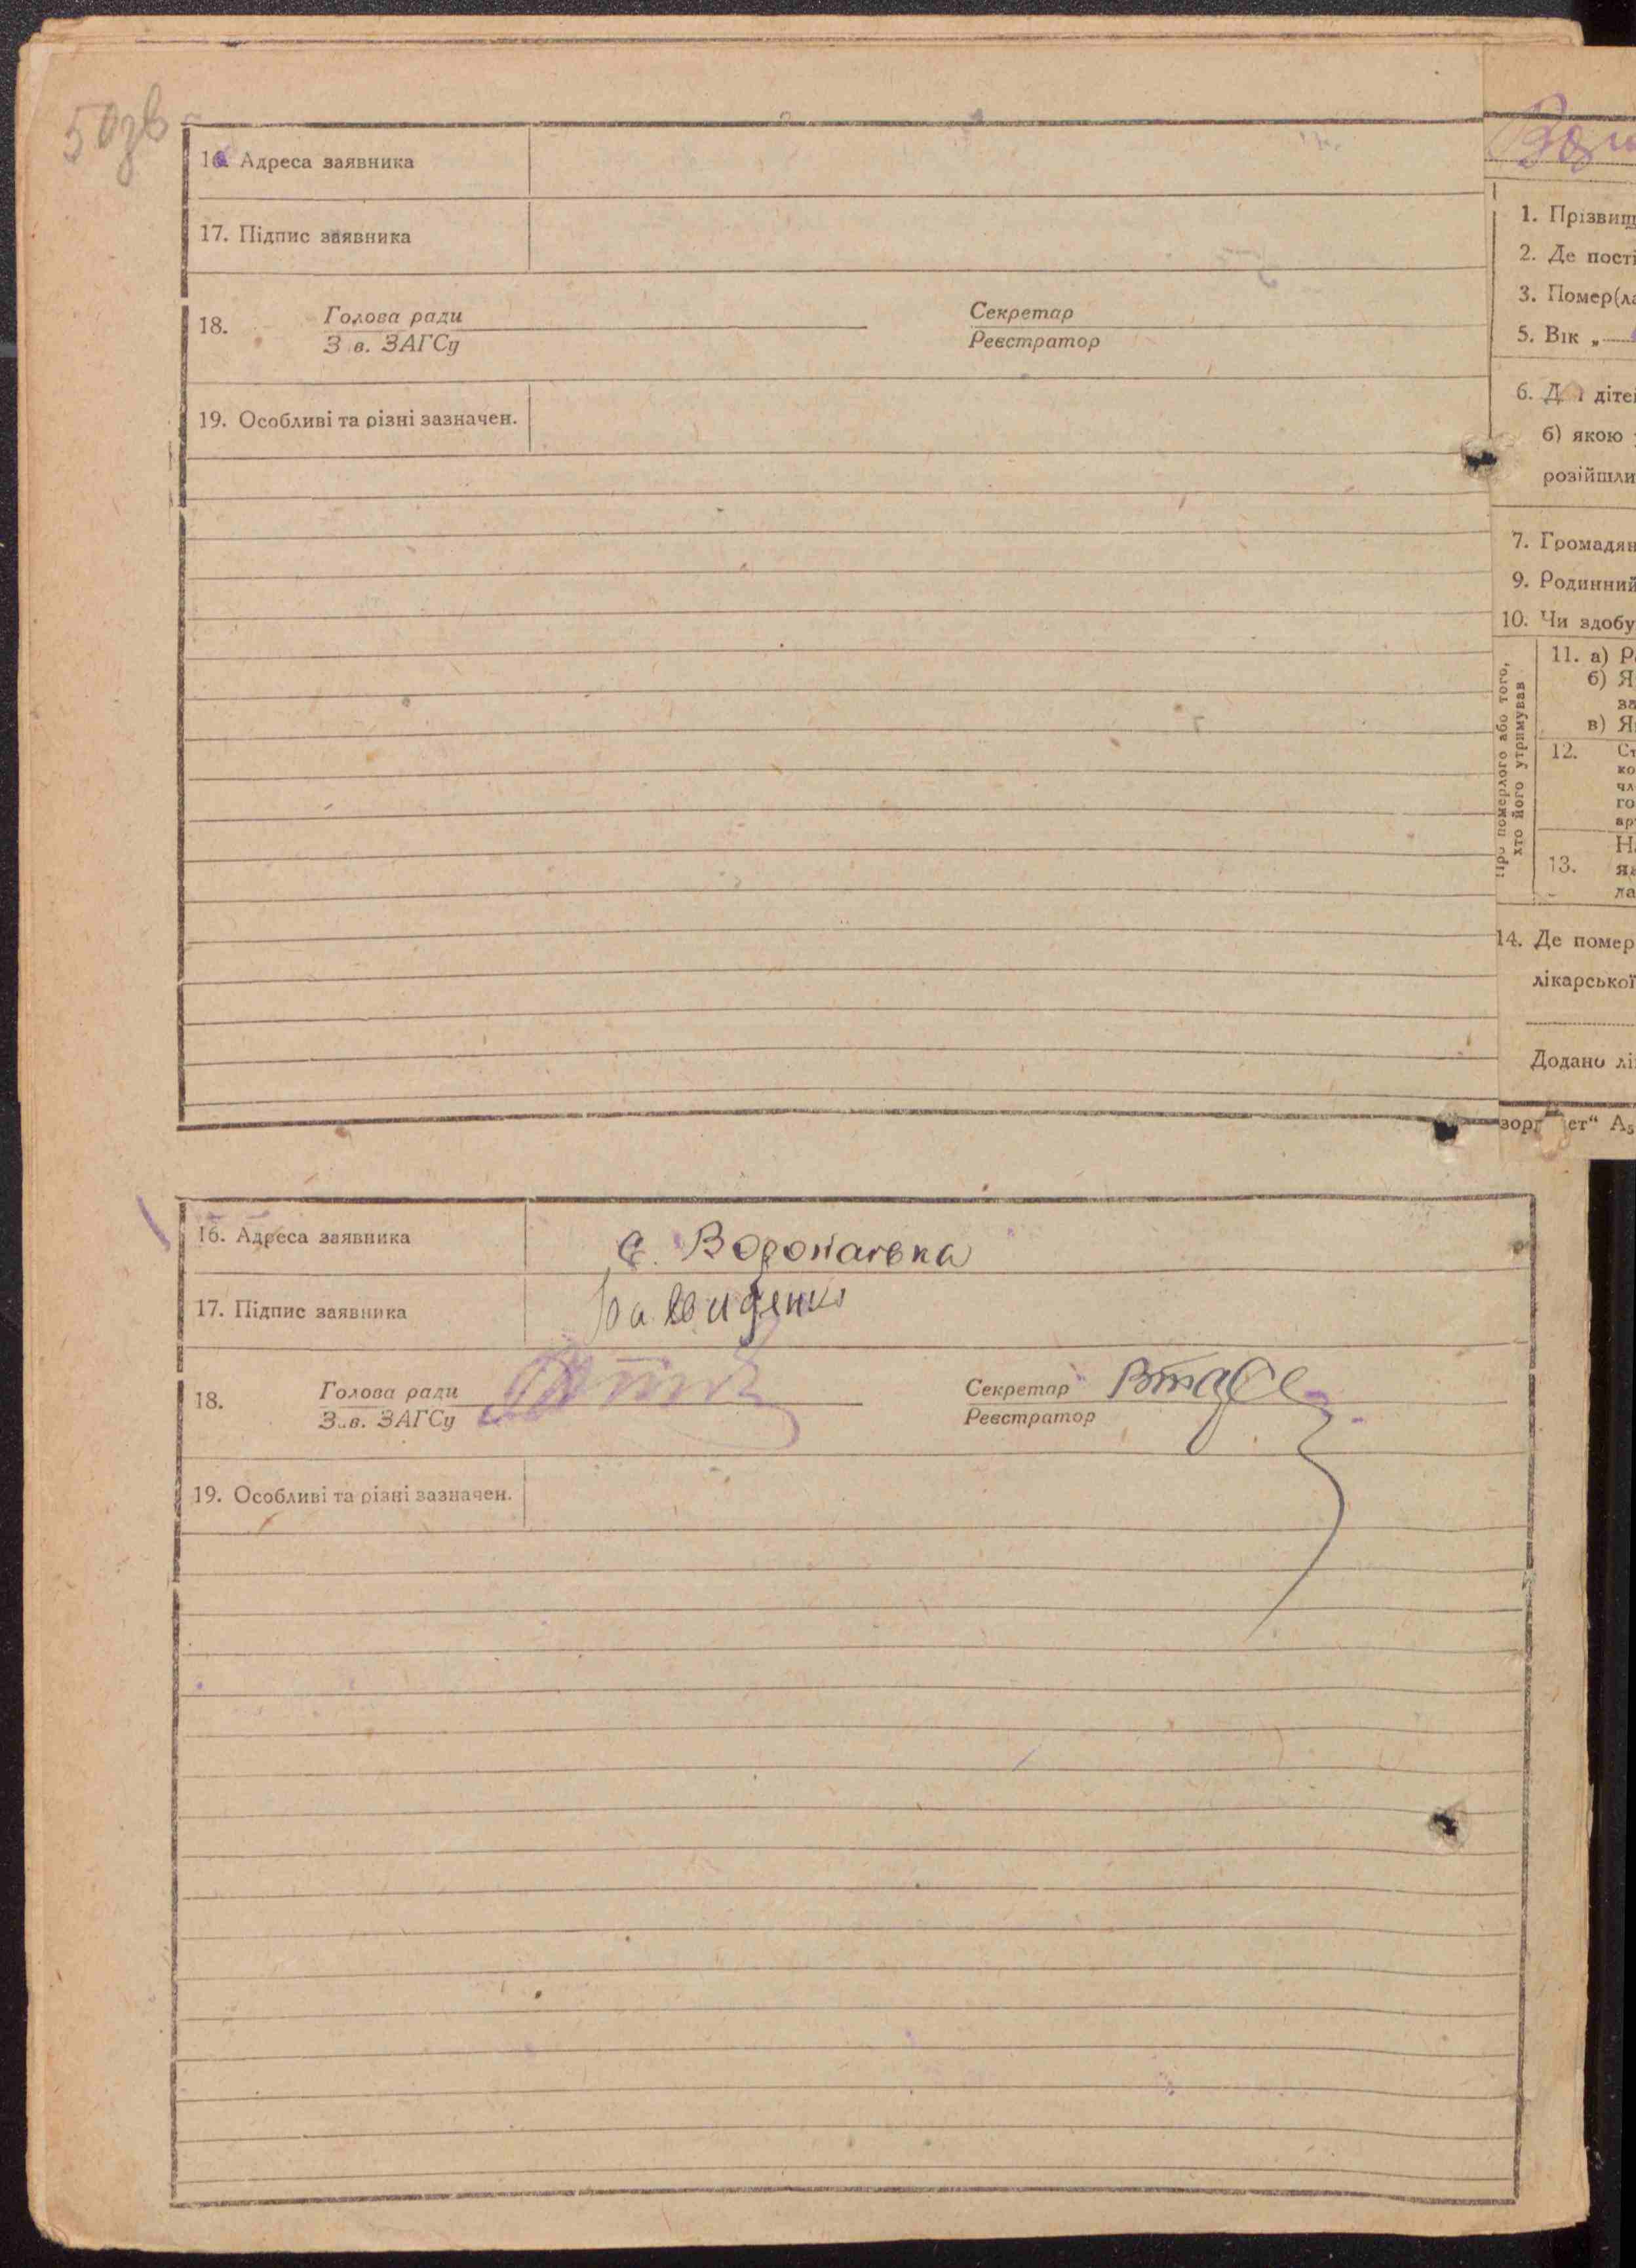 50зв
16. Адреса заявника
17. Підпис заявника
18. Голова ради
З в. ЗАГСу
Секретар
Реєстратор
19. Особливі та різні зазначен.
1. Прізвищ
2. Де пості
3. Помер(ла
5. Вік „
6. Д діте
б) якою
розійшли
7. Громадян
9. Родинний
10. Чи здобу
Про померлого або того,
хто його утримував
11. а) Р
б) Я
за
в) Я
12. Ст
ко
чл
го
ар
13. На
як
ла
14. Де помер
лікарської
Додано лі
ет“ А5
16. Адреса заявника
с. Воронаівка
17. Підпис заявника
18. Голова ради
З.в. ЗАГСу
Секретар
Реєстратор
19. Особливі та різні зазначен.